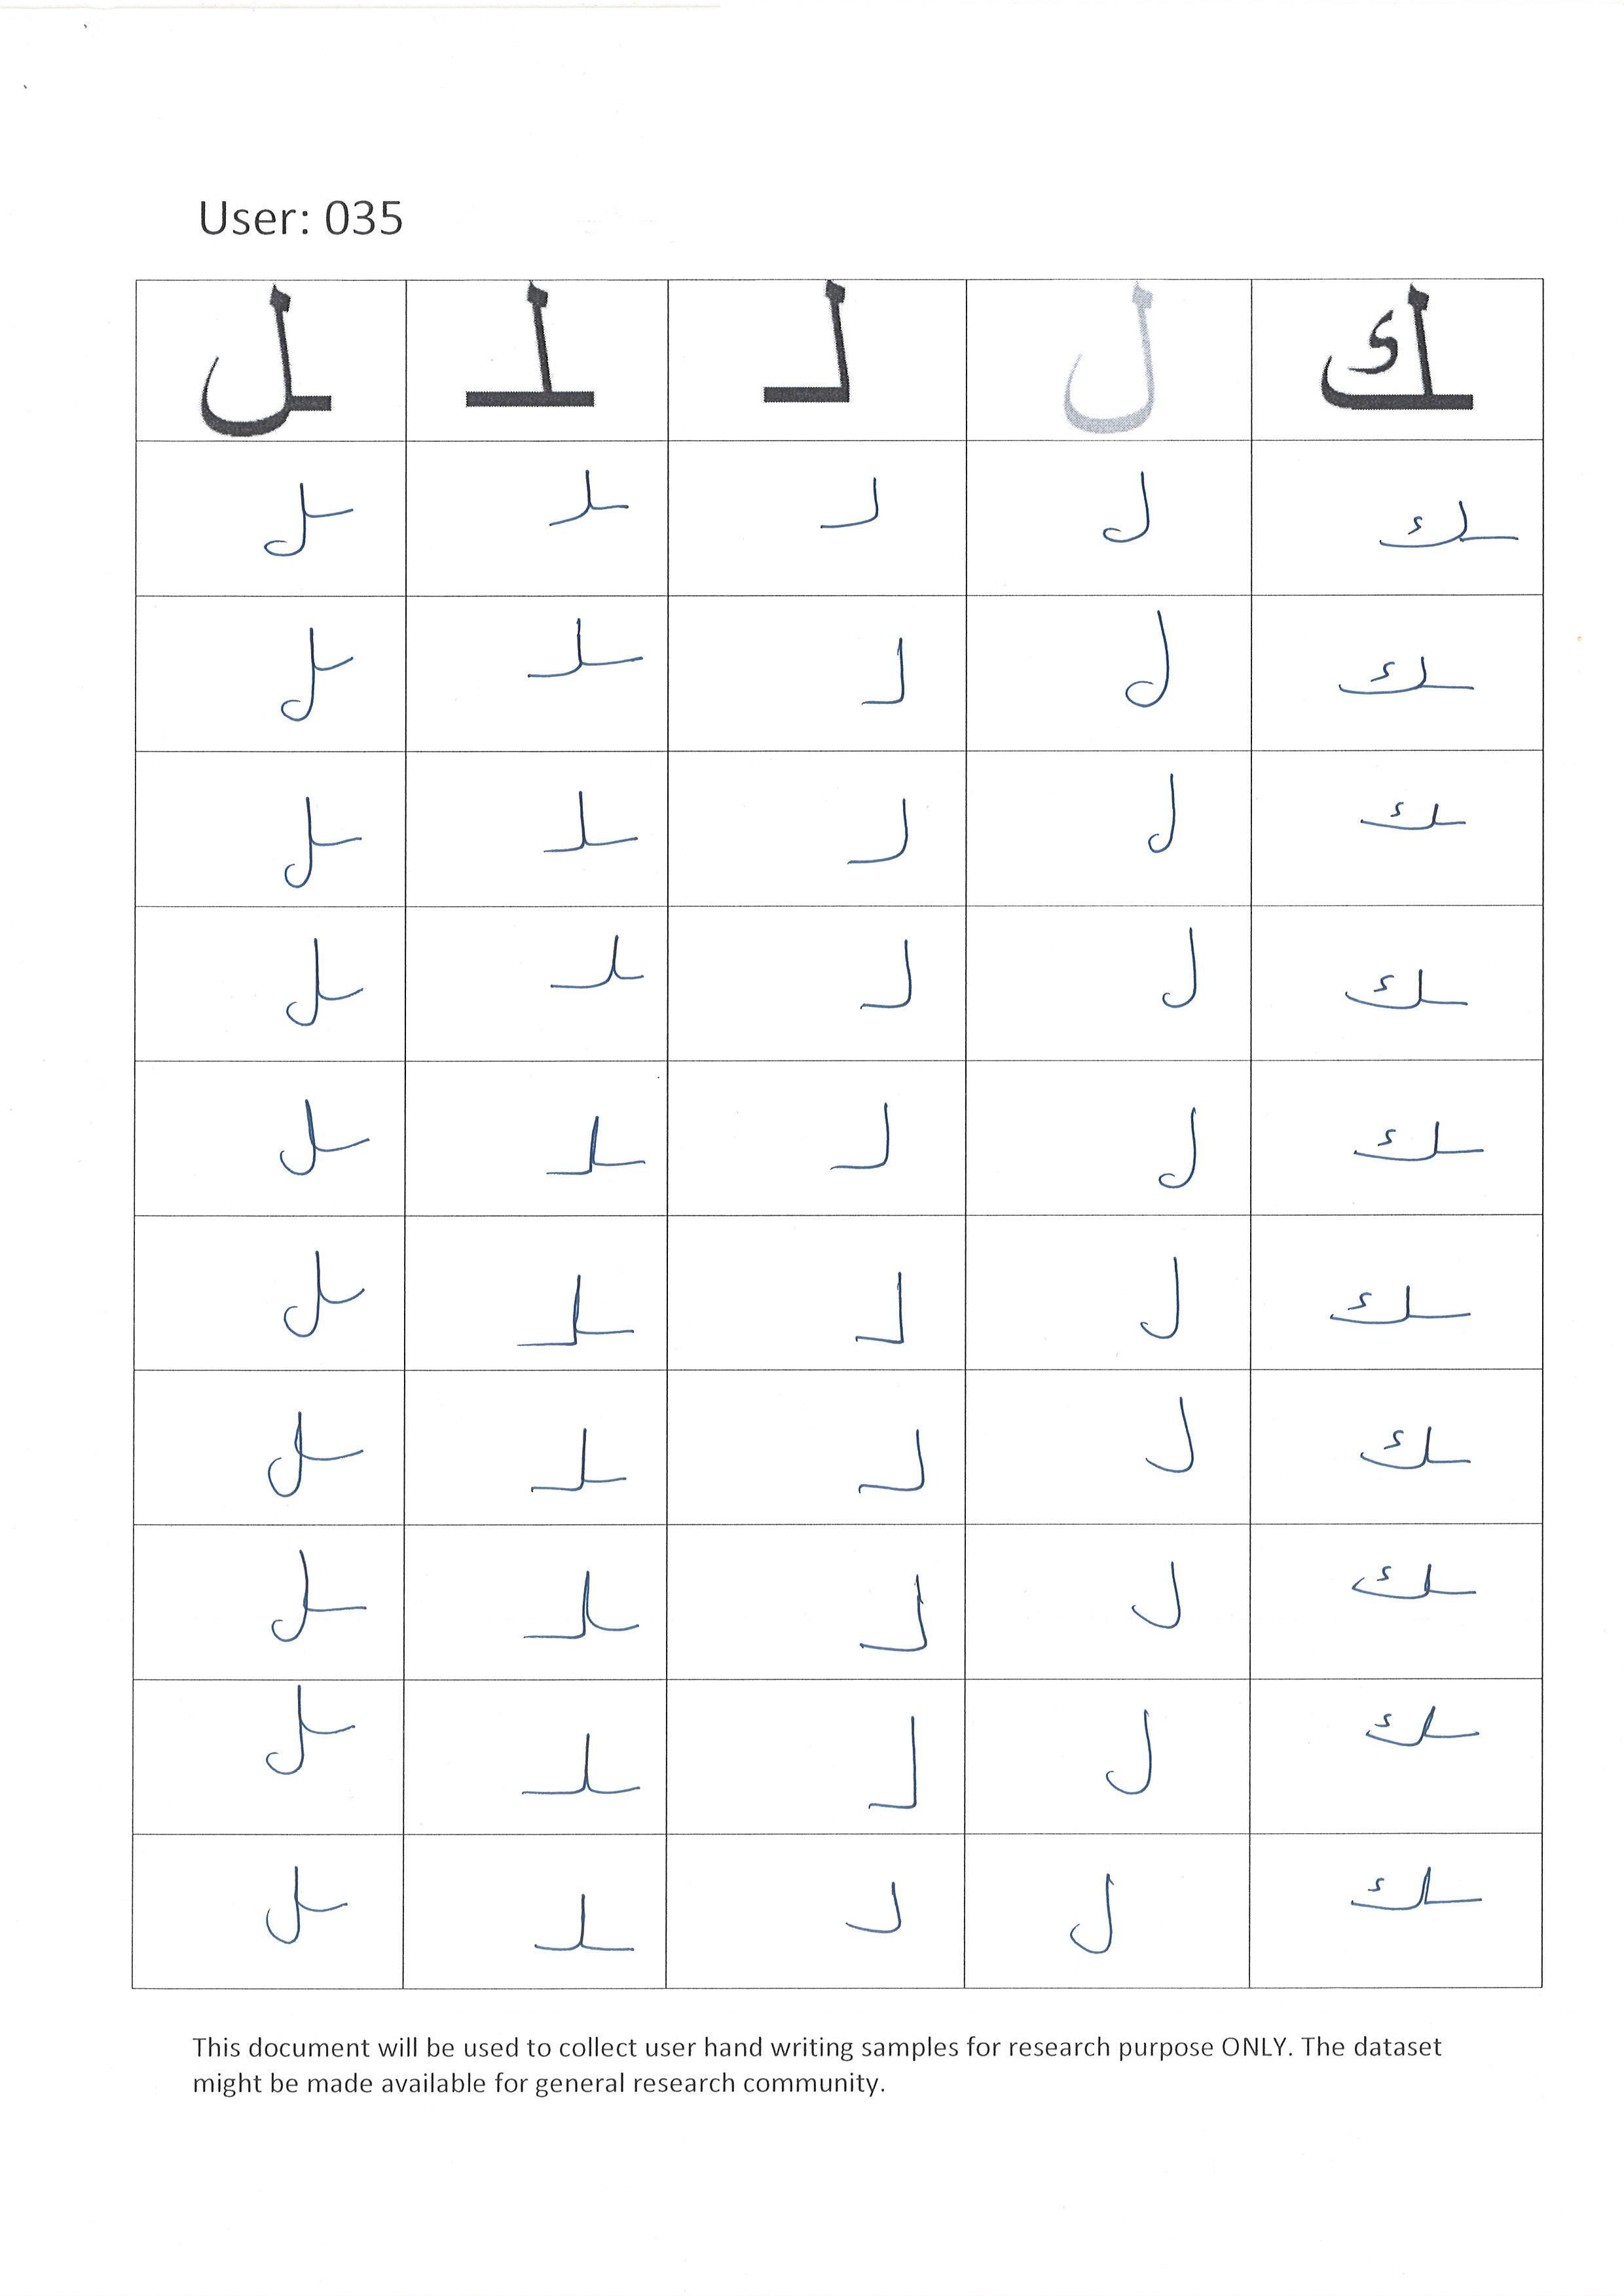 User: 035
ك ل لـ ـلـ ـل
ـك ل لـ ـلـ ـل
ـك ل لـ ـلـ ـل
ـك ل لـ ـلـ ـل
ـك ل لـ ـلـ ـل
ـك ل لـ ـلـ ـل
ـك ل لـ ـلـ ـل
ـك ل لـ ـلـ ـل
ـك ل لـ ـلـ ـل
ـك ل لـ ـلـ ـل
ـك ل لـ ـلـ ـل
This document will be used to collect user hand writing samples for research purpose ONLY. The dataset
might be made available for general research community.